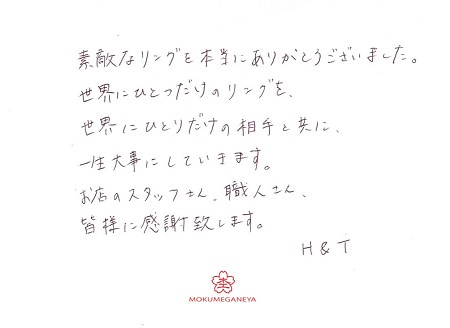 素敵なリングを本当にありがとうございました。
世界にひとつだけのリングを、
世界にひとりだけの相手と共に、
一生大事にしていきます。
お店のスタッフさん、職人さん、
皆様に感謝致します。
H & T
MOKUMEGANEYA